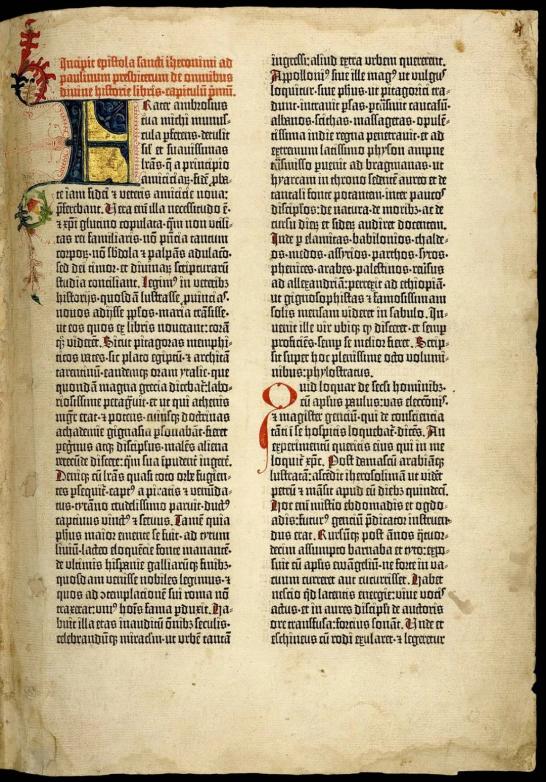 Incipit epistola sancti iheronimi ad
paulinum presbiterum de omnibus
divine historie libris· capitulũ pⁱmũ.
Frater ambrosius
tua michi munus-
cula pferens· detulit
sil et suavissimas
lr̃as· q̃ a principio
amicicia₂· fidẽ pba-
te iam fidei et veteris amicicie nova:
pferebant. Vera em̃ illa necessitudo ẽ·
et xp̃i glutino copulata· qm̃ non utili-
tas rei familiaris· nõ p̃ncia tantum
corpo₂· nõ sbdola et palpãs adulacõ·
sed dei timor· et divina₂ scripturarũ
studia conciliant. Legim⁹ in veterib₃
historijs· quosdã lustrasse p̃uincias·
novos adijsse pp̃los· maria trãsisse·
ut eos quos ex libris noverant: corã
q₃ viderẽt. Sicut pitagoras memphi-
ticos vates· sic plato egiptũ· et architã
tarentinũ· eandemq₃ oram ytalie· que
quondã magna grecia dicebat̃: labo-
riosissime peragⁱvit· et ut qui athenis
mgr̃ erat· et potens· cuiusq₃ doctrinas
achademie gignasia psonabãt· fieret
pegⁱnus atq₃ discipl̃us· malẽs aliena
verecũde discere: qm̃ sua ĩpudent̃ ingerẽ.
Deniq₃ cũ lr̃as quasi toto orbe fugien-
tes pseqⁱt̃· capt⁹ a piratis et venũda-
tus· tyrãno crudelissimo paruit· duct⁹
captivus vinct⁹ et servus. Tamẽ quia
ph̃us maior emente se fuit· ad tytum
liviũ· lacteo eloquẽcie fonte manantẽ·
de vltimis hispanie galliarũq₃ finib₃·
quosdam venisse nobiles legimus· et
quos ad cõtemplacõem sui roma nõ
traxerat: vni⁹ hoĩs fama pduxit. Ha-
buit illa etas inauditũ oĩnib₃ seculis·
celebrandũq₃ miraclm̃· ut vrbẽ tantã
ingressi: aliud extra urbem quererent.
Appolloni⁹ sive ille mag⁹ ut vulgus
loquitur· sive ph̃us· ut pitagorici tra-
dunt· intravit p̃sas· ptrãsivit caucasũ·
albanos· scithas· massagetas· opulẽ-
tissima indie regna penetravit· et ad
extremum latissimo physon ampne
trãsmisso puenit ad bragmanas· ut
hyarcam in throno sedentẽ aureo et de
tantali fonte potantem· inter paucos
discipl̃os: de natura· de morib₃· ac de
cursu die₂ et sidey₂ audiret docentem.
Inde p elamitas· babilonios· chalde-
os· medos· assyrios· parthos· syros·
phenices· arabes· palestinos· reũsus
ad allexandriã: perrexit ad ethiopiã·
ut gignosophistas et famosissimam
solis mensam videret in sabulo. In-
venit ille vir ubiq₃ q̃ disceret· et semp
proficiẽs· semp se melior fieret. Scrip-
sit super hoc plenissime octo volumi-
nibus: phylostratus.
Quid loquar de sec̃li hominib₃·
cũ apl̃us paulus: vas electõnis·
et magister genciũ· qui de consciencia
tãti ĩ se hospitis loquebat̃· dicẽs. An
experimentũ queritis eius qui in me
loquit̃ xp̃c. Post damascũ arabiãq₃
lustratã: ascẽdit iherosolimã ut videt̃
petrũ et mãsit apud eũ dieb₃ quindeci.
Hoc em̃ misterio ebdomadis et ogdo-
adis: futur⁹ genciũ p̃dicator instruen-
dus erat. Rursũq₃ post ãnos q̃tuor-
decim assumpto barnaba et tyto: expo-
suit cũ apl̃is ewãgeliũ· ne forte in va-
cuum curreret aut cucurrisset. Habet
nescio q̃d latentis energie: vive voc⁹
actus· et in aures discipl̃i de auctoris
ore transfusa: forcius sonat. Unde et
eschineus cũ rodi exularet· et legeretur